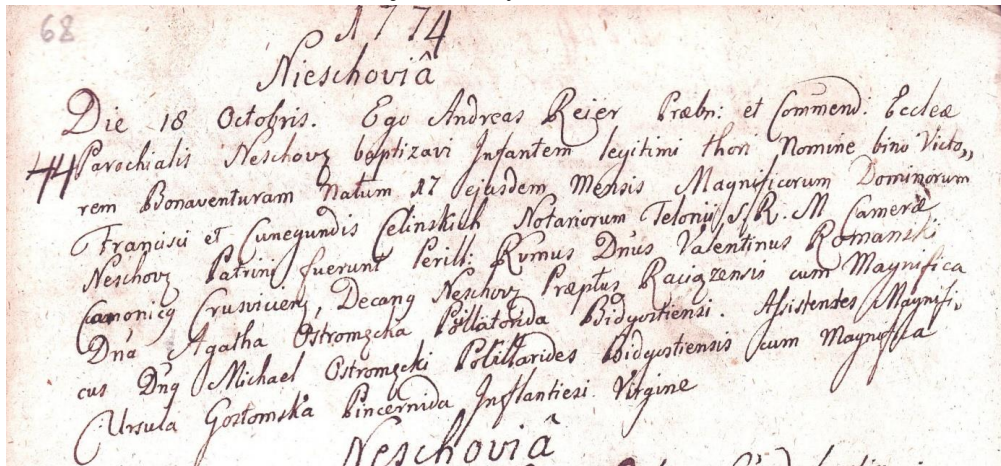 68
1774
Nieschoviâ
Die 18 Octobris. Ego Andreas Reier Præbr: et Commend: Eccleæ
44 Parochialis Neschov baptizavi Infantem legitimi thori Nomine bino Victo,,
rem Bonaventuram Natum 17 ejusdem Mensis Magnificorum Dominorum
Francisci et Cunegundis Celinskich Notariorum Telonij S. R. M Cameræ
Neschov Patrini fuerunt Perill: Rvmus Dnus Valentinus Romanski
Canonicq Crusvicien, Decanq Neschov Præptus Raciązensis cum Magnifica
Dna Agatha Ostromęcka Bidgostiensi. Asistentes Magnifi,
cus Dnq Michael Ostromęcki Bidgostiensis cum Magnifica
Ursula Gostomska Pincernida Inflantiesi Virgine
Neschoviâ